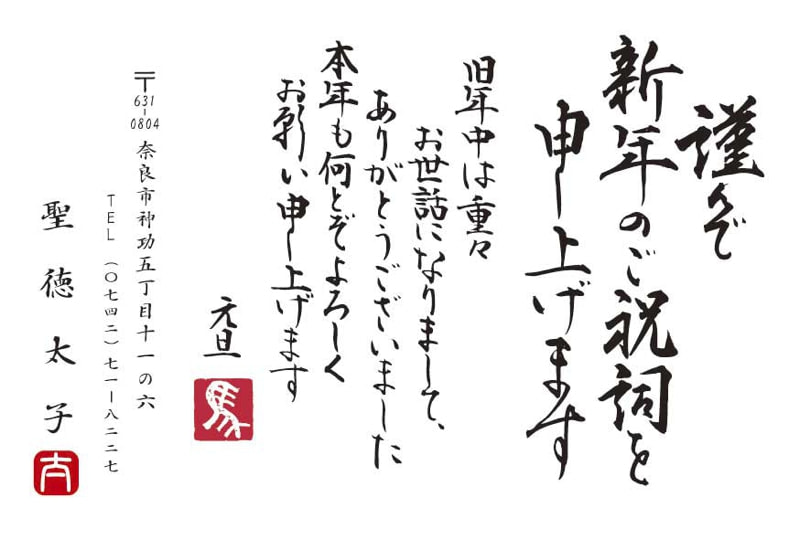 謹んで
新年のご祝詞を
申し上げます
旧年中は重々
お世話になりまして、
ありがとうございました
本年も何とぞよろしく
お願い申し上げます
元旦
馬
〒631-0804 奈良市神功五丁目十一の六
TEL (〇七四二)七一ー八二二七
聖徳太子